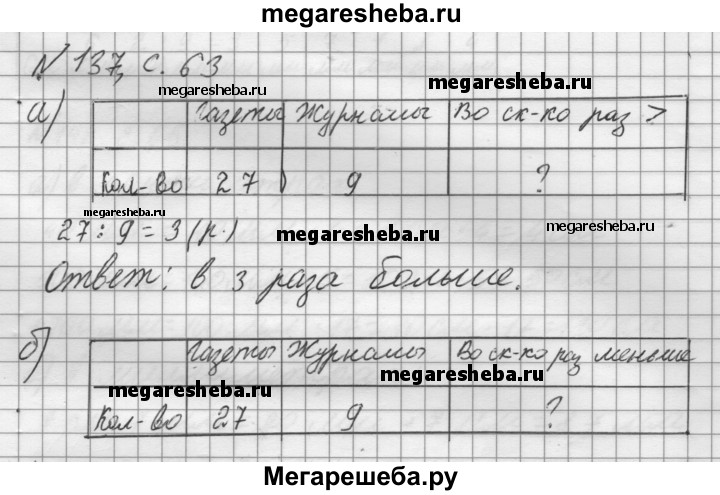 megaresheba.ru
N 137, с. 63
megaresheba.ru
megaresheba.ru
а) Газеты Журналы Во ск-ко раз >
Кол-во 27 9 ?
megaresheba.ru
27 : 9 = 3 (р.)
megaresheba.ru
megaresheba.ru
Ответ: в 3 раза больше.
б) Газеты Журналы Во ск-ко раз меньше
megaresheba.ru
megaresheba.ru
Кол-во 27 9 ?
Мегарешеба.ру